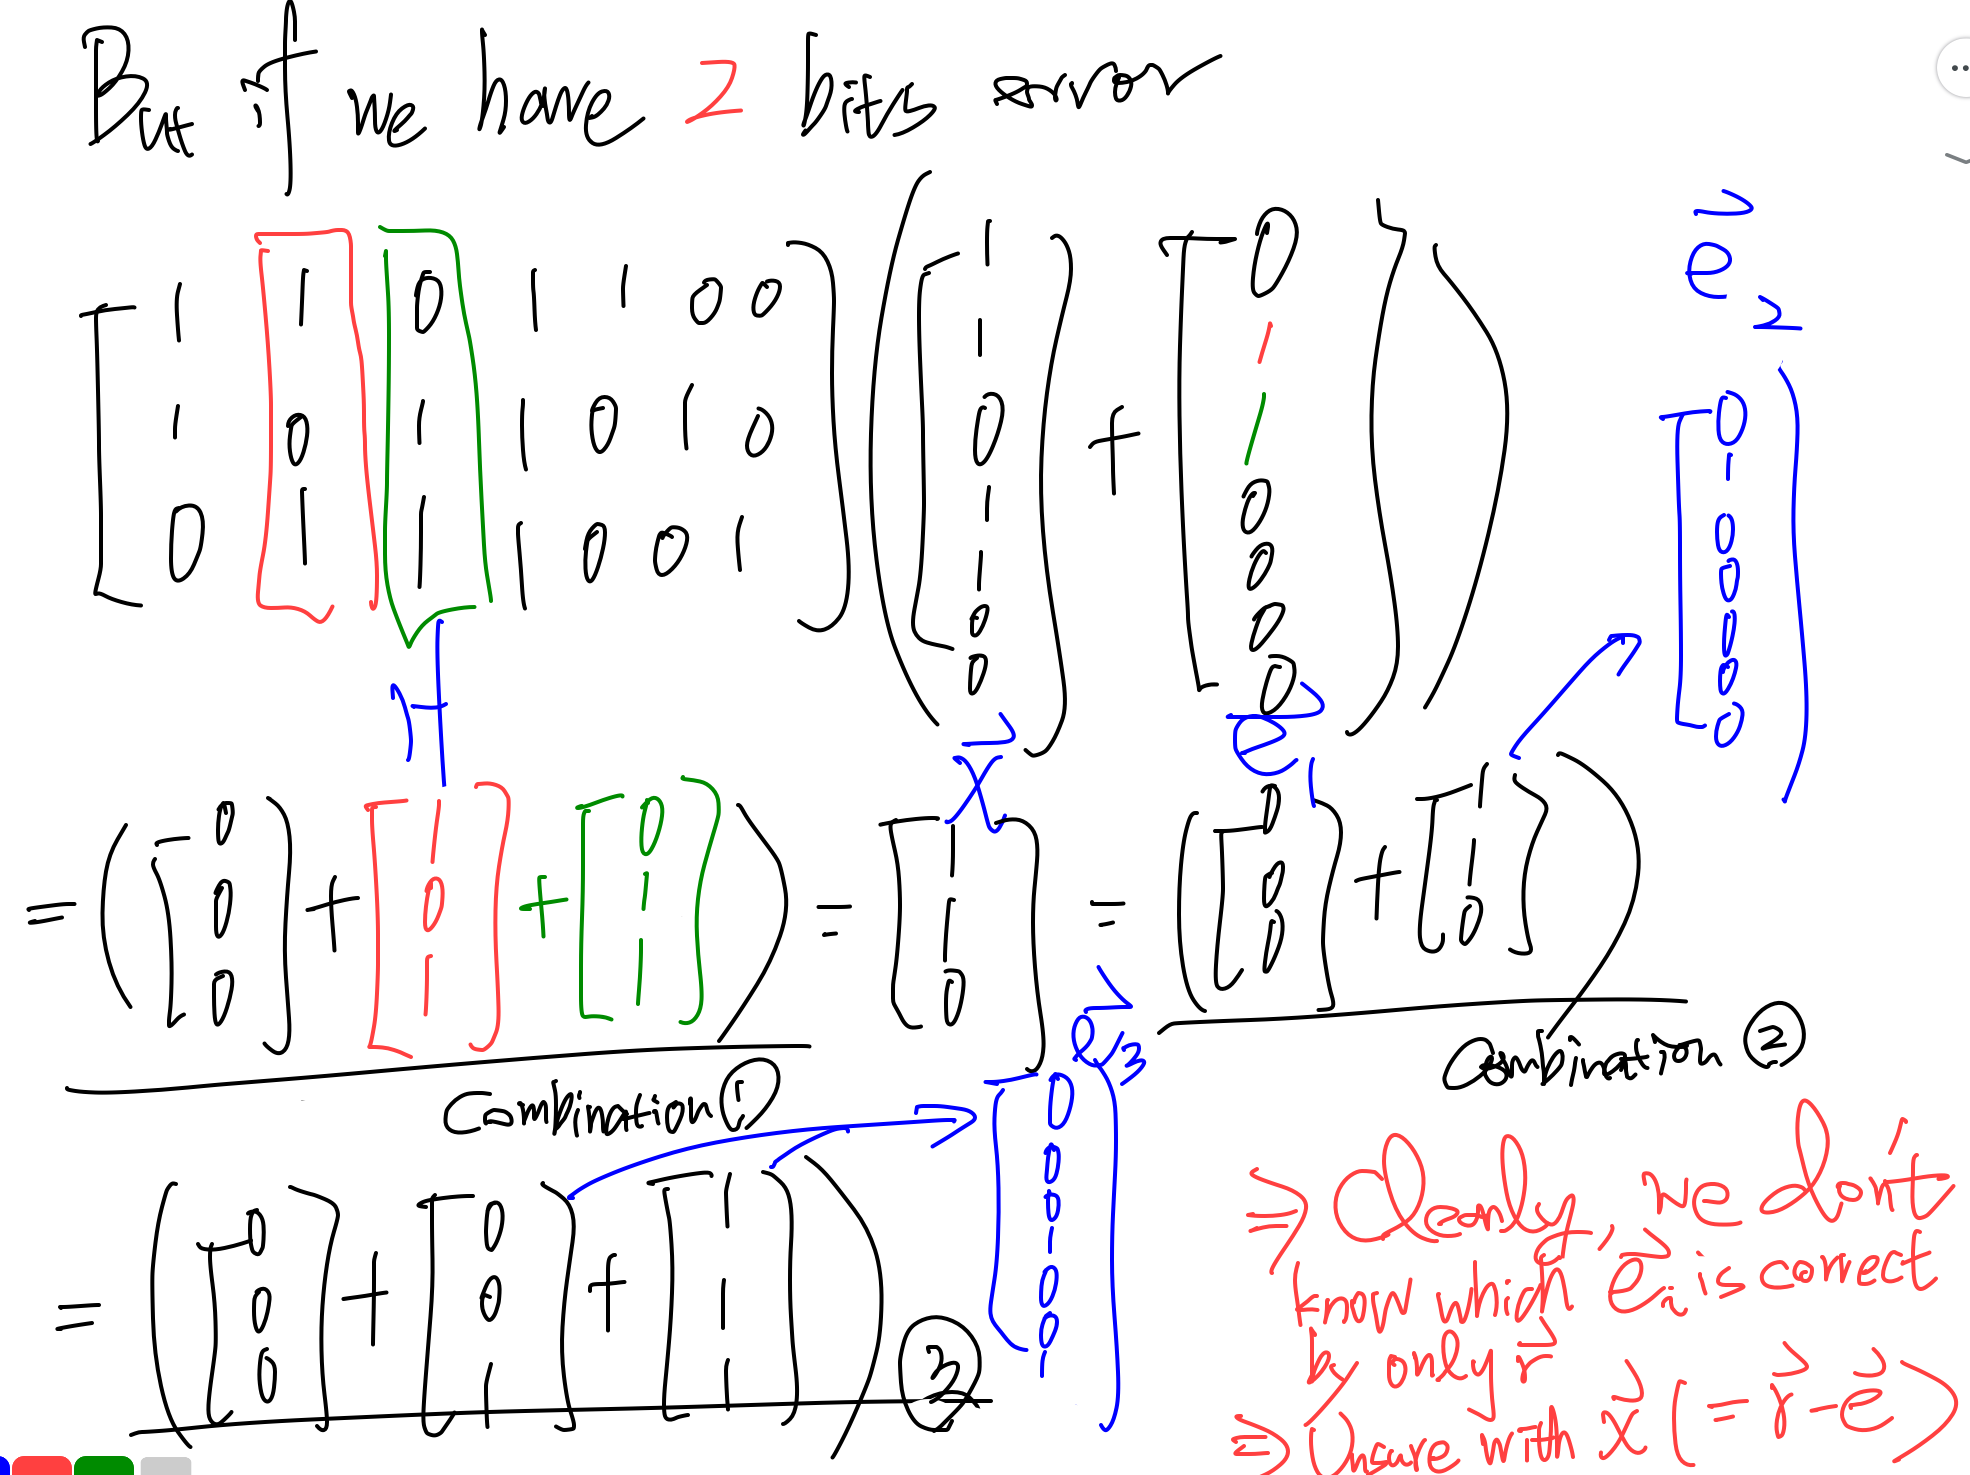 But if we have 2 bits error
[ 1 1 0 1 1 0 0 ] ( [ 1 ] + [ 0 ] )
[ 1 0 1 1 0 1 0 ] ( [ 1 ] + [ 1 ] )
[ 0 1 1 1 0 0 1 ] ( [ 0 ] + [ 1 ] )
[ 1 ] [ 0 ]
[ 1 ] [ 0 ]
[ 0 ] [ 0 ]
[ 0 ] [ 0 ]
H x⃗ e⃗1
e⃗2
[ 0 ]
[ 1 ]
[ 0 ]
[ 0 ]
[ 0 ]
[ 0 ]
[ 0 ]
= ( [ 0 ] + [ 1 ] + [ 0 ] ) = [ 1 ] = ( [ 0 ] + [ 1 ] )
[ 0 ] [ 0 ] [ 1 ] [ 1 ] [ 0 ] [ 1 ]
[ 0 ] [ 1 ] [ 1 ] [ 0 ] [ 0 ] [ 0 ]
Combination ①
Combination ②
e⃗3
[ 0 ]
[ 0 ]
[ 0 ]
[ 1 ]
[ 0 ]
[ 0 ]
[ 1 ]
= ( [ 0 ] + [ 0 ] + [ 1 ] ) ③
[ 0 ] [ 0 ] [ 1 ]
[ 0 ] [ 1 ] [ 1 ]
⇒ Clearly, we don't
know which e⃗i is correct
by only r⃗
⇒ Unsure with x⃗ ( = r⃗ - e⃗ )